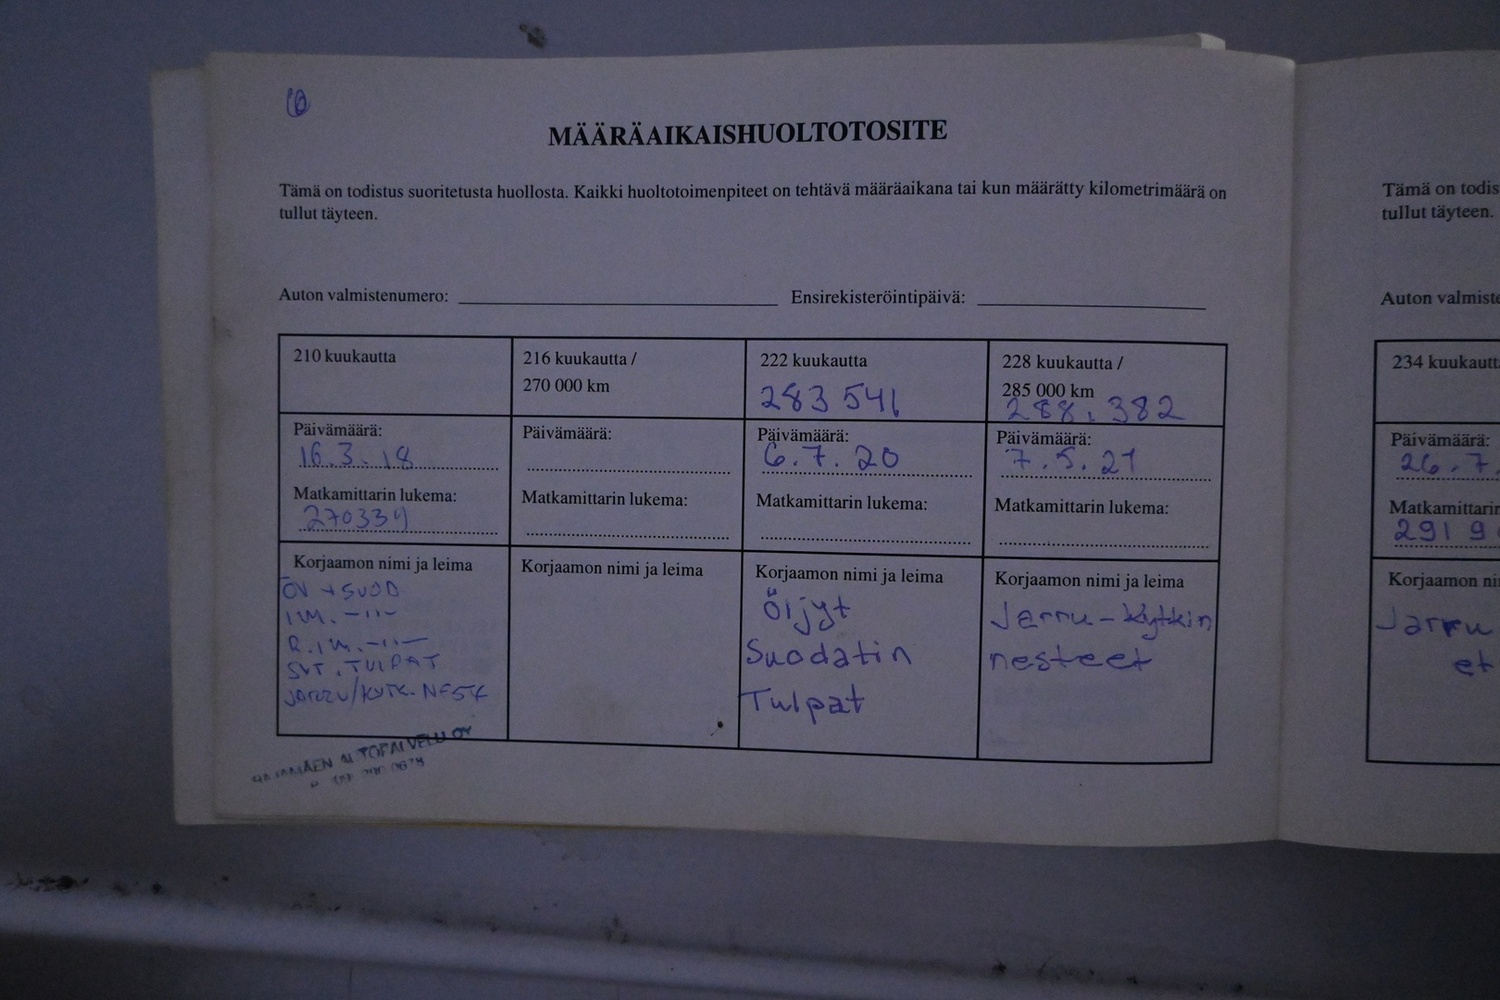 MÄÄRÄAIKAISHUOLTOTOSITE
Tämä on todistus suoritetusta huollosta. Kaikki huoltotoimenpiteet on tehtävä määräaikana tai kun määrätty kilometrimäärä on
tullut täyteen.
Auton valmistenumero:
Ensirekisteröintipäivä:
210 kuukautta
Päivämäärä:
16.3.18
Matkamittarin lukema:
270334
Korjaamon nimi ja leima
ÖV + SUOD
I.M. -"-
R.I.M. -"-
SYT. TULPAT
JARRU/KYTK. NEST
AUTOPALVELU OY
216 kuukautta /
270 000 km
Päivämäärä:
Matkamittarin lukema:
Korjaamon nimi ja leima
222 kuukautta
283 541
Päivämäärä:
6.7.20
Matkamittarin lukema:
Korjaamon nimi ja leima
Öljyt
Suodatin
Tulpat
228 kuukautta /
285 000 km
288.382
Päivämäärä:
7.5.21
Matkamittarin lukema:
Korjaamon nimi ja leima
Jarru-kytkin
nesteet
Tämä on todis
tullut täyteen.
Auton valmiste
234 kuukautt
Päivämäärä:
26.7.
Matkamittarin
291 9
Korjaamon ni
Jarru
et